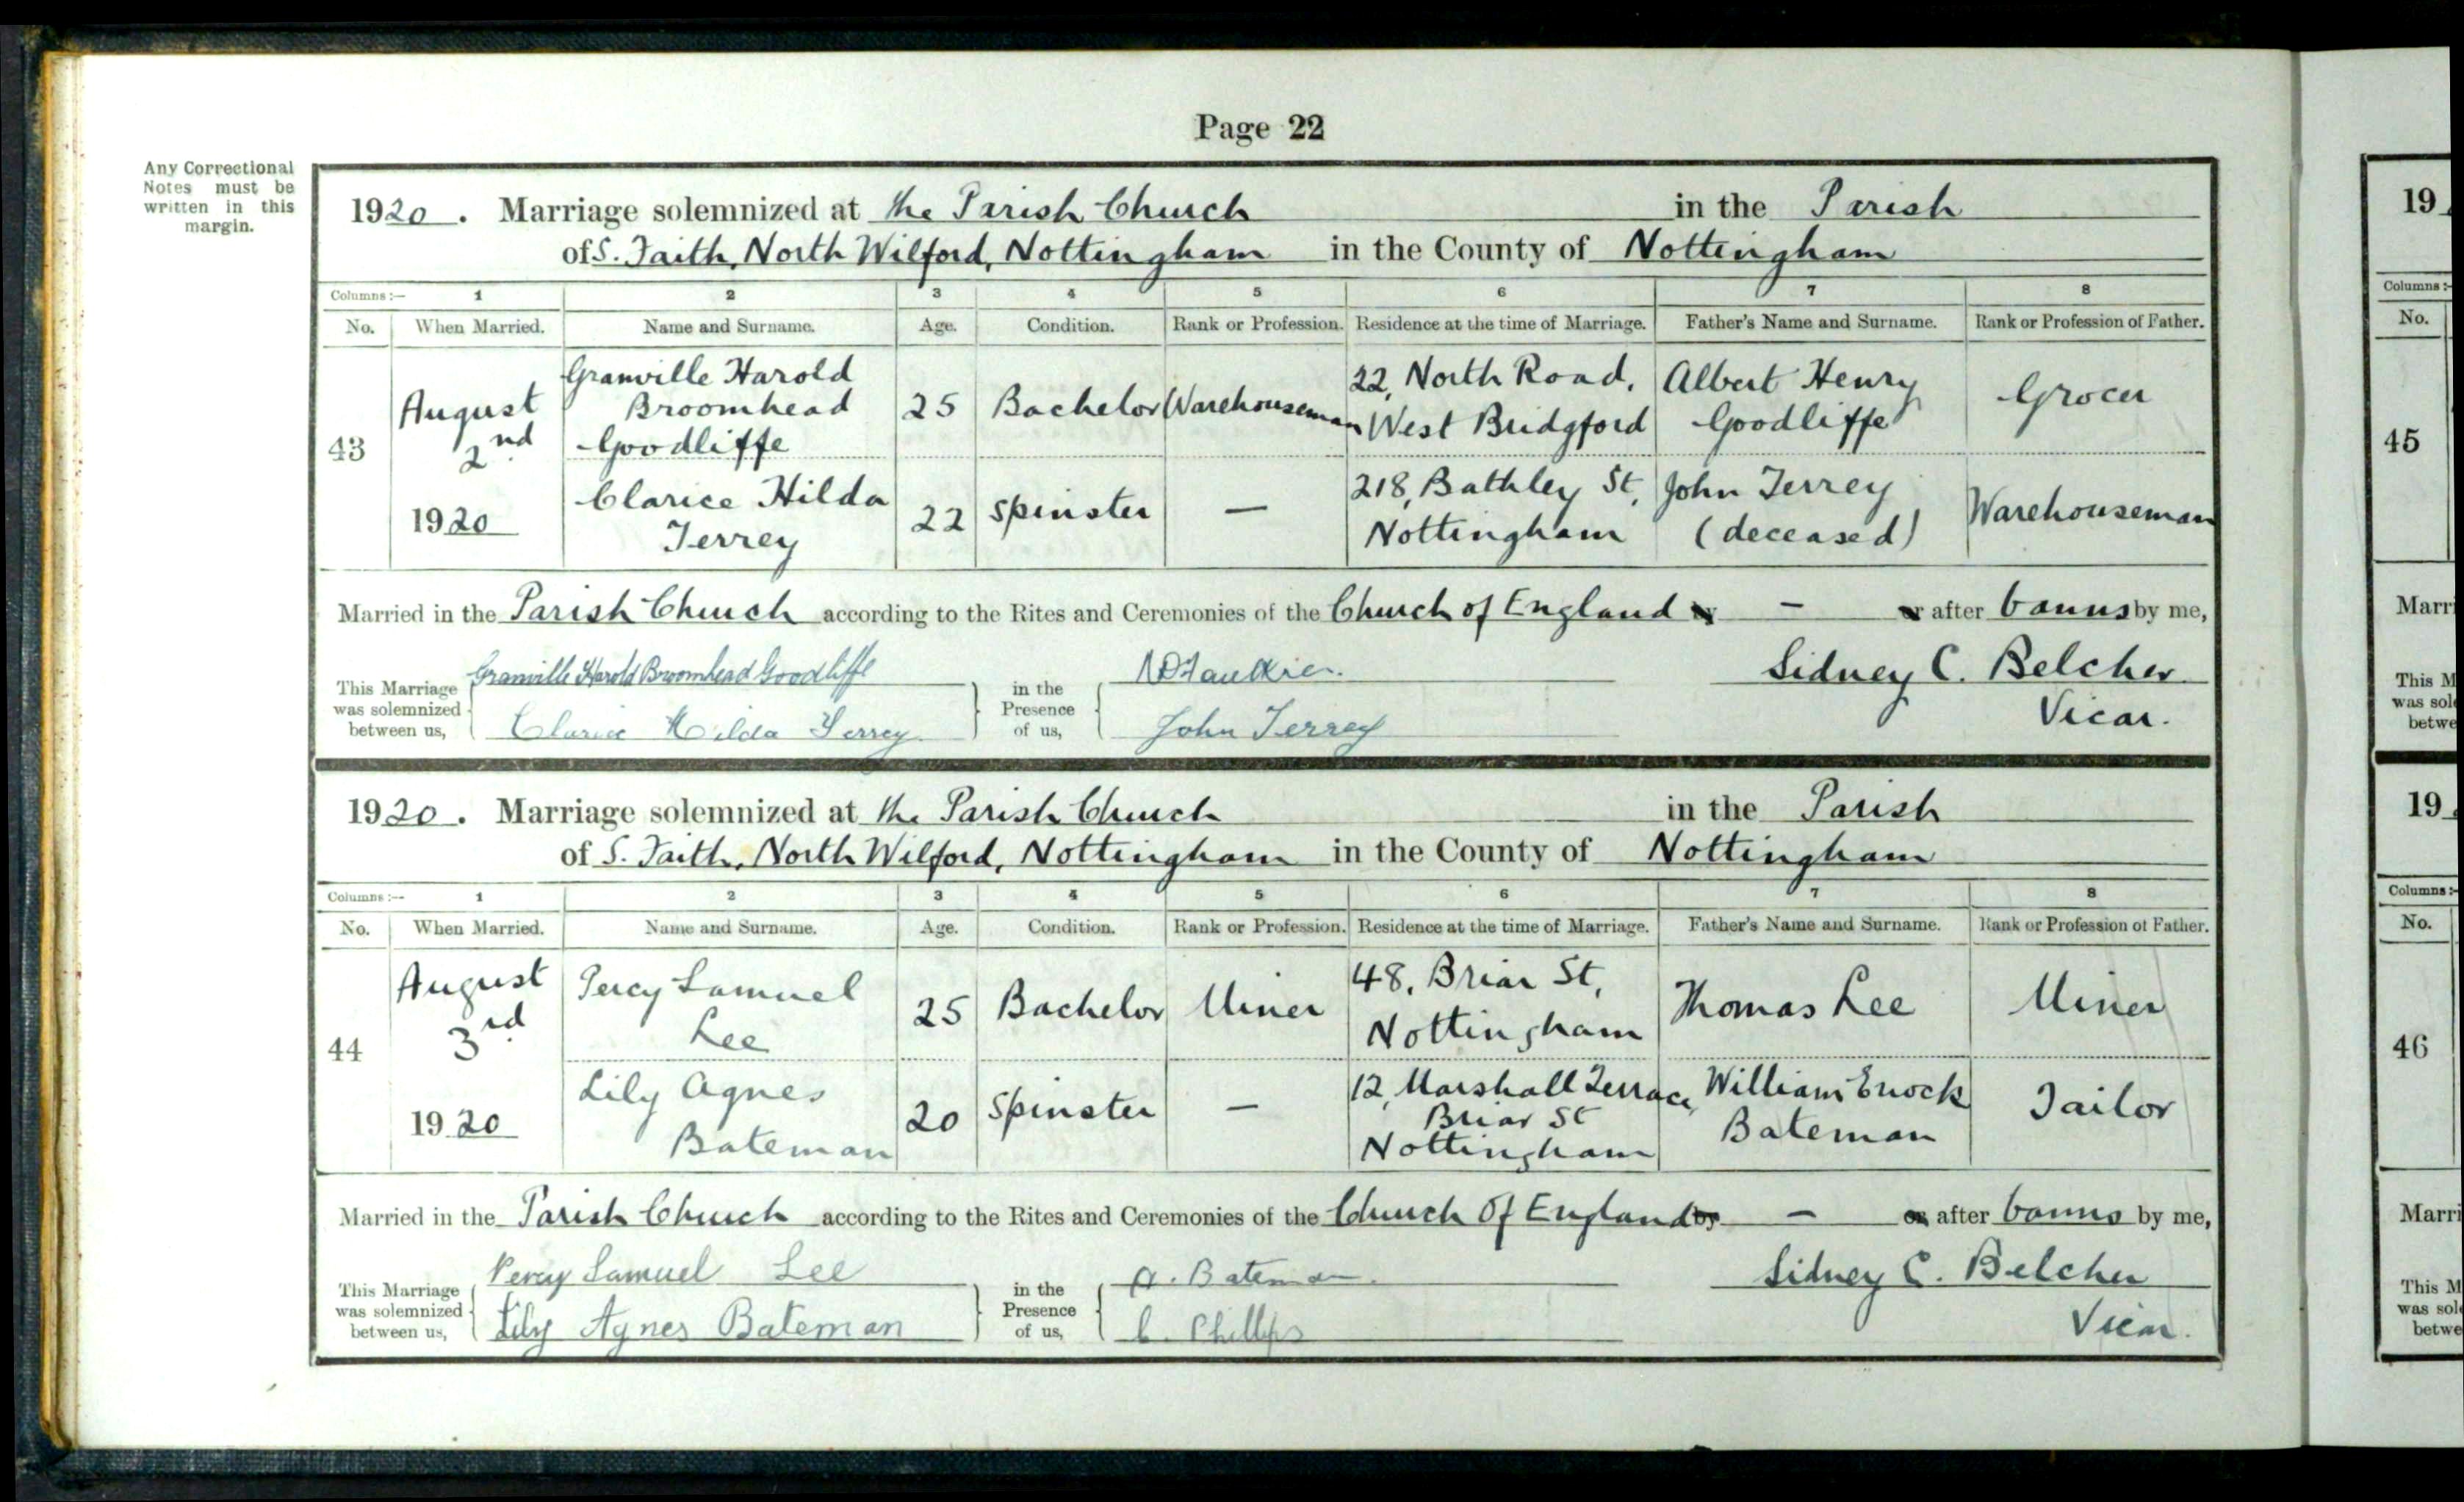 Page 22
Any Correctional
Notes must be
written in this
margin.
1920. Marriage solemnized at the Parish Church in the Parish
of S. Faith, North Wilford, Nottingham in the County of Nottingham
Columns:— 1 2 3 4 5 6 7 8
No. When Married. Name and Surname. Age. Condition. Rank or Profession. Residence at the time of Marriage. Father's Name and Surname. Rank or Profession of Father.
43 August 2nd 1920
Granville Harold
Broomhead
Goodliffe
25 Bachelor Warehouseman
22, North Road,
West Bridgford
Albert Henry
Goodliffe
Grocer
Clarice Hilda
Terrey
22 Spinster —
218, Bathley St,
Nottingham
John Terrey
(deceased)
Warehouseman
Married in the Parish Church according to the Rites and Ceremonies of the Church of England by - or after banns by me,
This Marriage
was solemnized
between us,
Granville Harold Broomhead Goodliffe
Clarice Hilda Terrey
in the
Presence
of us,
John Terrey
Sidney C. Belcher
Vicar.
1920. Marriage solemnized at the Parish Church in the Parish
of S. Faith, North Wilford, Nottingham in the County of Nottingham
Columns:— 1 2 3 4 5 6 7 8
No. When Married. Name and Surname. Age. Condition. Rank or Profession. Residence at the time of Marriage. Father's Name and Surname. Rank or Profession of Father.
44 August 3rd 1920
Percy Samuel
Lee
25 Bachelor Miner
48, Briar St,
Nottingham
Thomas Lee
Miner
Lily Agnes
Bateman
20 Spinster —
12, Marshall Terrace,
Briar St
Nottingham
William Enock
Bateman
Tailor
Married in the Parish Church according to the Rites and Ceremonies of the Church of England by - or after banns by me,
This Marriage
was solemnized
between us,
Percy Samuel Lee
Lily Agnes Bateman
in the
Presence
of us,
A. Bateman.
C. Phillips
Sidney C. Belcher
Vicar.
19
Columns:-
No.
45
Marri
This M
was sol
betwe
19
Columns:-
No.
46
Marri
This M
was sol
betwe